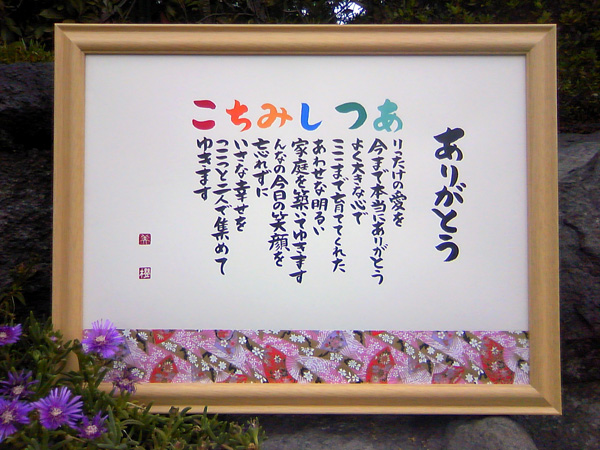 ありがとう
ありったけの愛を
今まで本当にありがとう
つよく大きな心で
ここまで育ててくれた
しあわせな明るい
家庭を築いてゆきます
みんなの今日の笑顔を
忘れずに
ちいさな幸せを
こつこつと二人で集めて
ゆきます